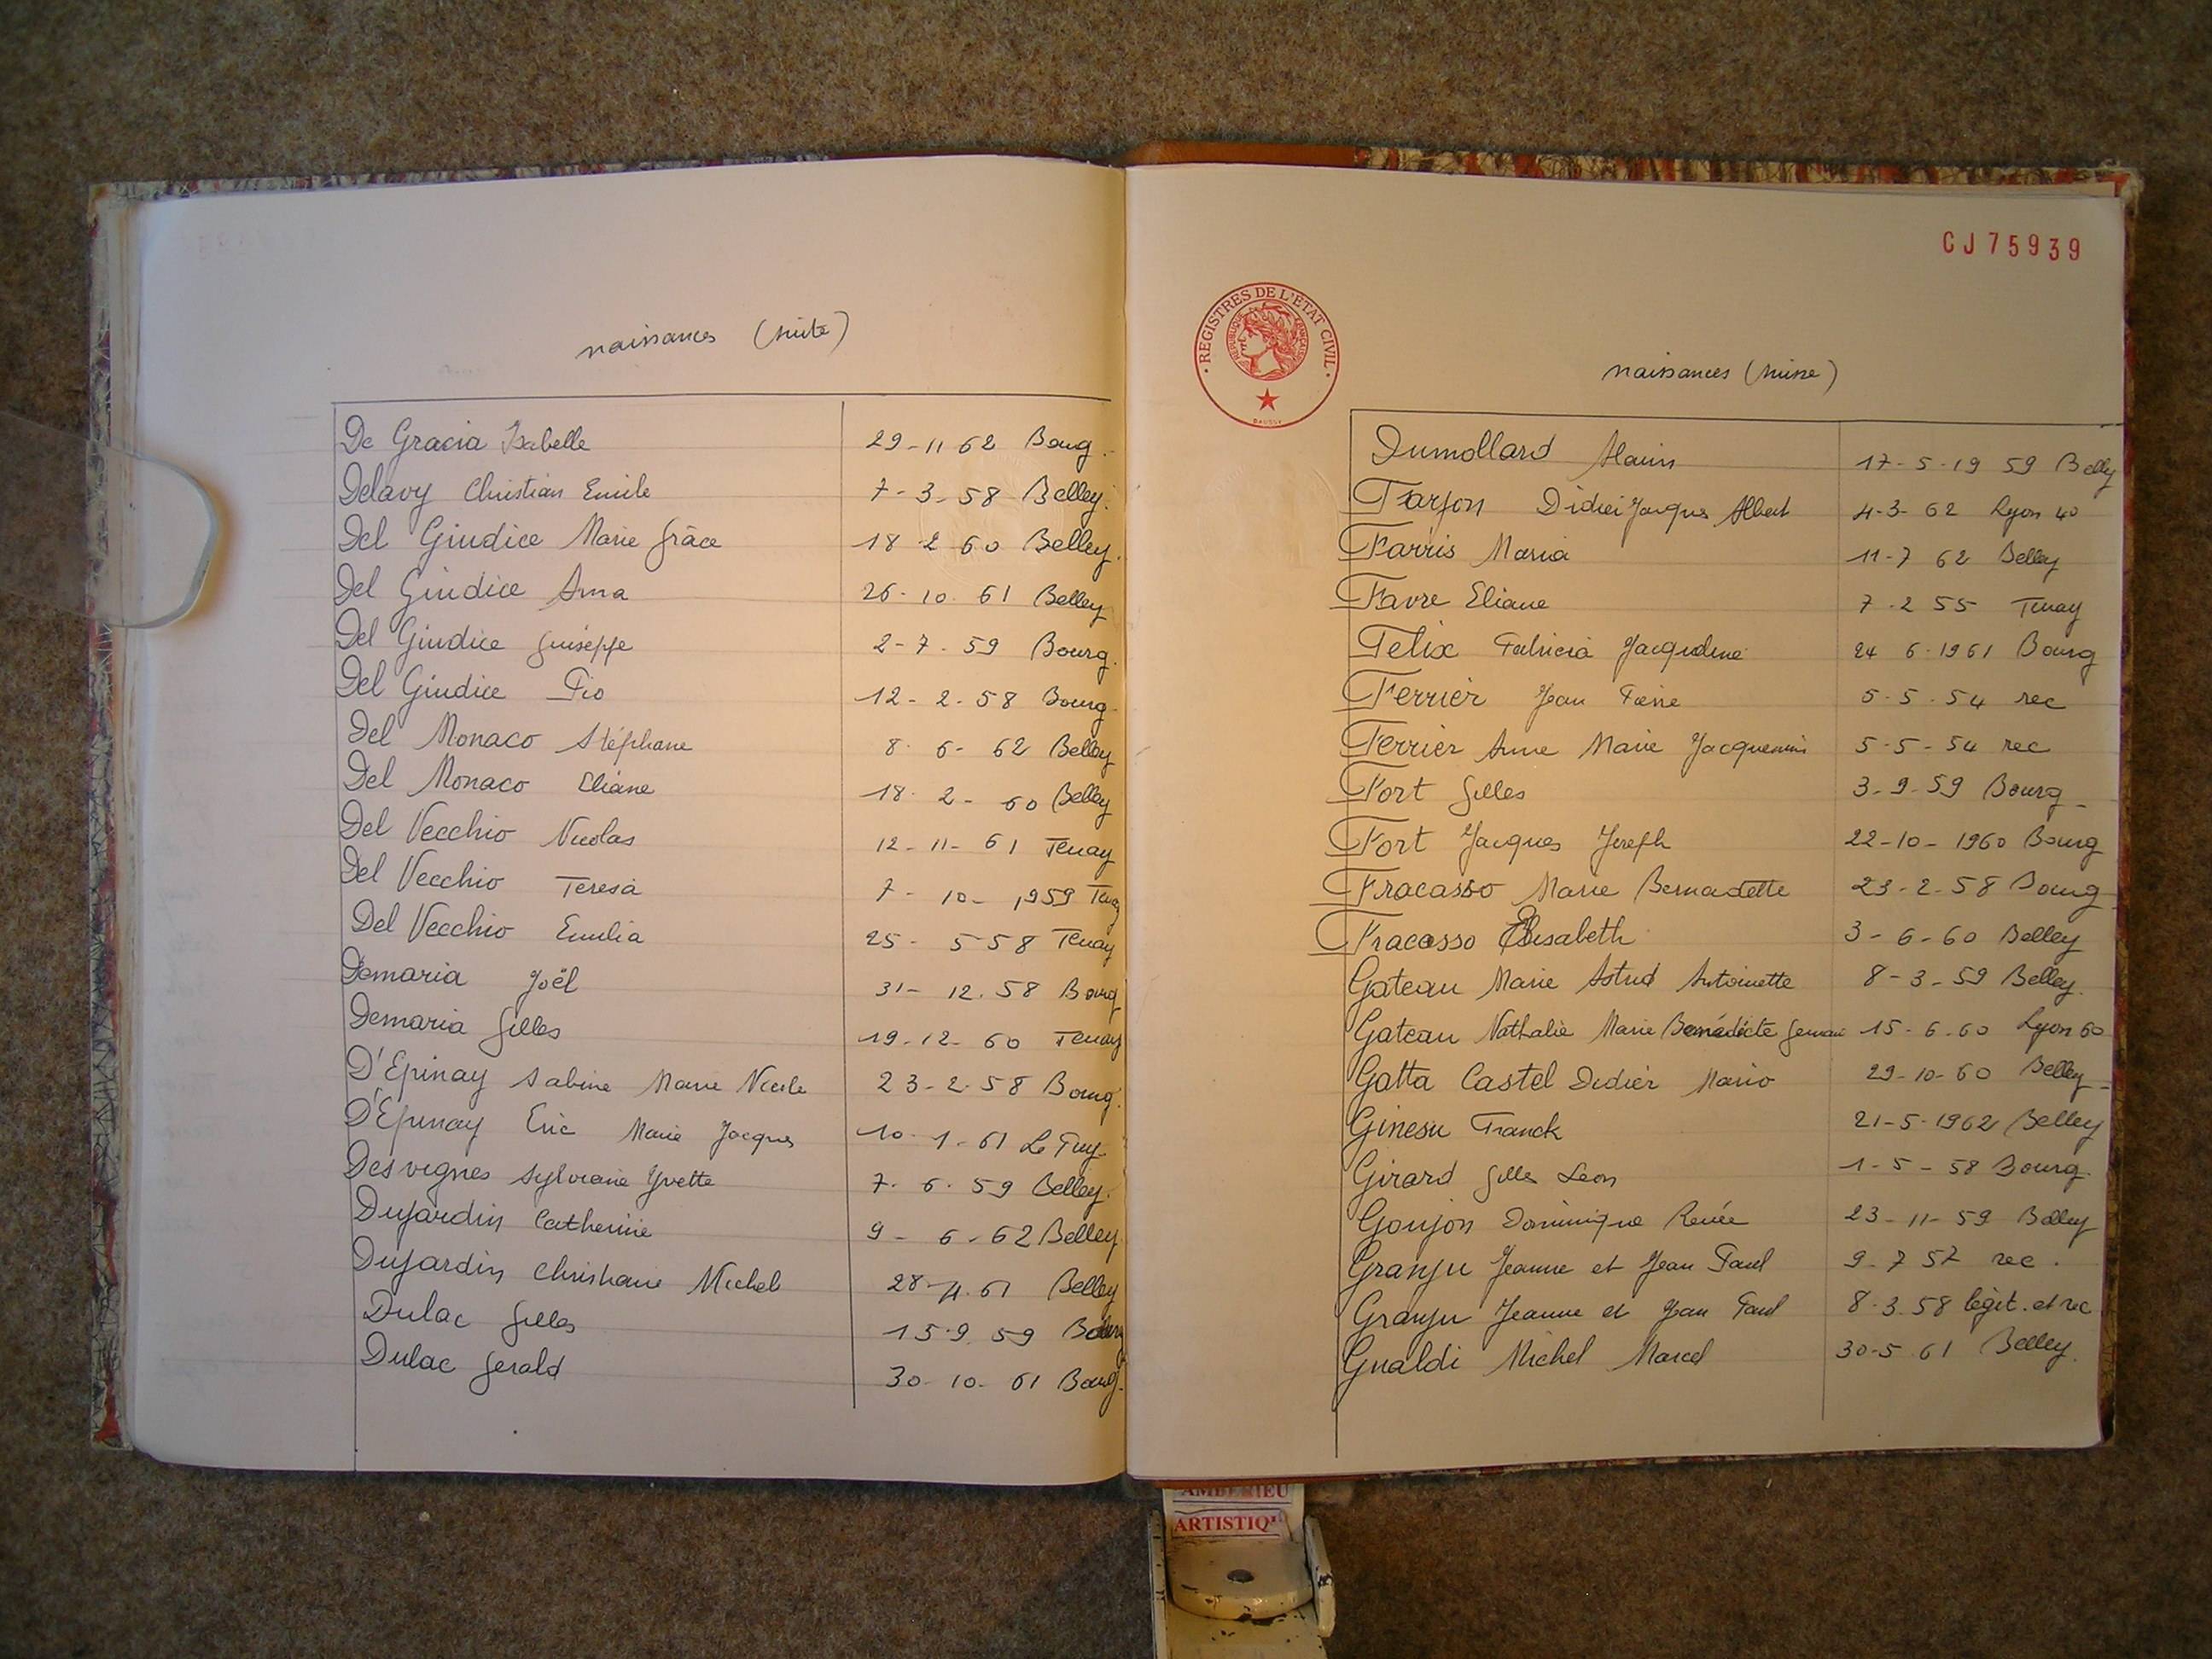 naissances (suite)
De Gracia Isabelle 29-11 62 Bourg.
Delavy Christian Emile 7-3-58 Belley.
Del Giudice Marie Grâce 18 2 60 Belley.
Del Giudice Anna 26-10-61 Belley
Del Giudice Guiseppe 2-7-59 Bourg.
Del Giudice Pio 12-2-58 Bourg
Del Monaco Stéphane 8-6-62 Belley
Del Monaco Eliane 18-2-60 Belley
Del Vecchio Nicolas 12-11-61 Tenay
Del Vecchio Teresa 7-10-1959 Tenay
Del Vecchio Emilia 25-5 58 Tenay
Demaria Joël 31-12.58 Bourg
Demaria Gilles 19-12-60 Tenay
D'Epinay Sabine Marie Nicole 23-2-58 Bourg.
D'Épinay Eric Marie Jacques 10-1-61 Le Puy
Desvignes Sylviane Yvette 7-6-59 Belley.
Dujardin Catherine 9-6-62 Belley
Dujardin Christiane Michel 28-4.61 Belley
Dulac Gilles 15.9.59 Bourg
Dulac Gerald 30-10-61 Bourg.
CJ75939
REGISTRES DE L'ETAT CIVIL
REPUBLIQUE FRANÇAISE
naissances (suite)
Dumollard Alain 17-5-19 59 Belley
Farjon Didier Jacques Albert 4-3-62 Lyon 4o
Farris Maria 11-7 62 Belley
Favre Eliane 7.2 55 Tenay
Felix Patricia Jacqueline 24 6-1961 Bourg
Ferrier Jean Pierre 5-5-54 rec
Ferrier Anne Marie 5-5-54 rec
Fort Gilles 3-9-59 Bourg
Fort Jacques Joseph 22-10-1960 Bourg
Fracasso Marie Bernadette 23-2-58 Bourg
Fracasso Elisabeth 3-6-60 Belley
Gateau Marie Astrid Antoinette 8-3-59 Belley.
Gateau Nathalie Marie Bénédicte 15-6-60 Lyon 6o
Gatta Castel Didier Mario 29-10-60 Belley
Ginesu Franck 21-5-1962 Belley
Girard Gilles Leon 1-5-58 Bourg.
Goujon Dominique Renée 23-11-59 Belley
Granju Jeanne et Jean Paul 9-7 57 rec.
Granju Jeanne et Jean Paul 8-3.58 légit. et rec
Gualdi Michel Marcel 30-5 61 Belley.
AMBERIEU
ARTISTIQ